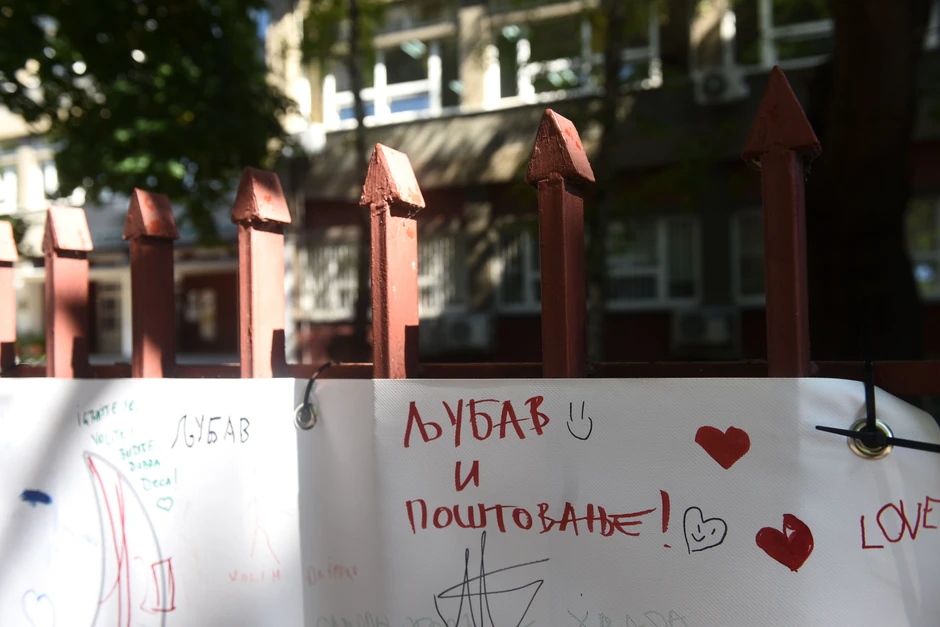 IGRAJTE SE
VOLITE!
BUDITE
DOBRA
Deca!
ЉУБАВ
ЉУБАВ
И
ПОШТОВАЊЕ!
LOVE
VOLIM
ХВАЛА